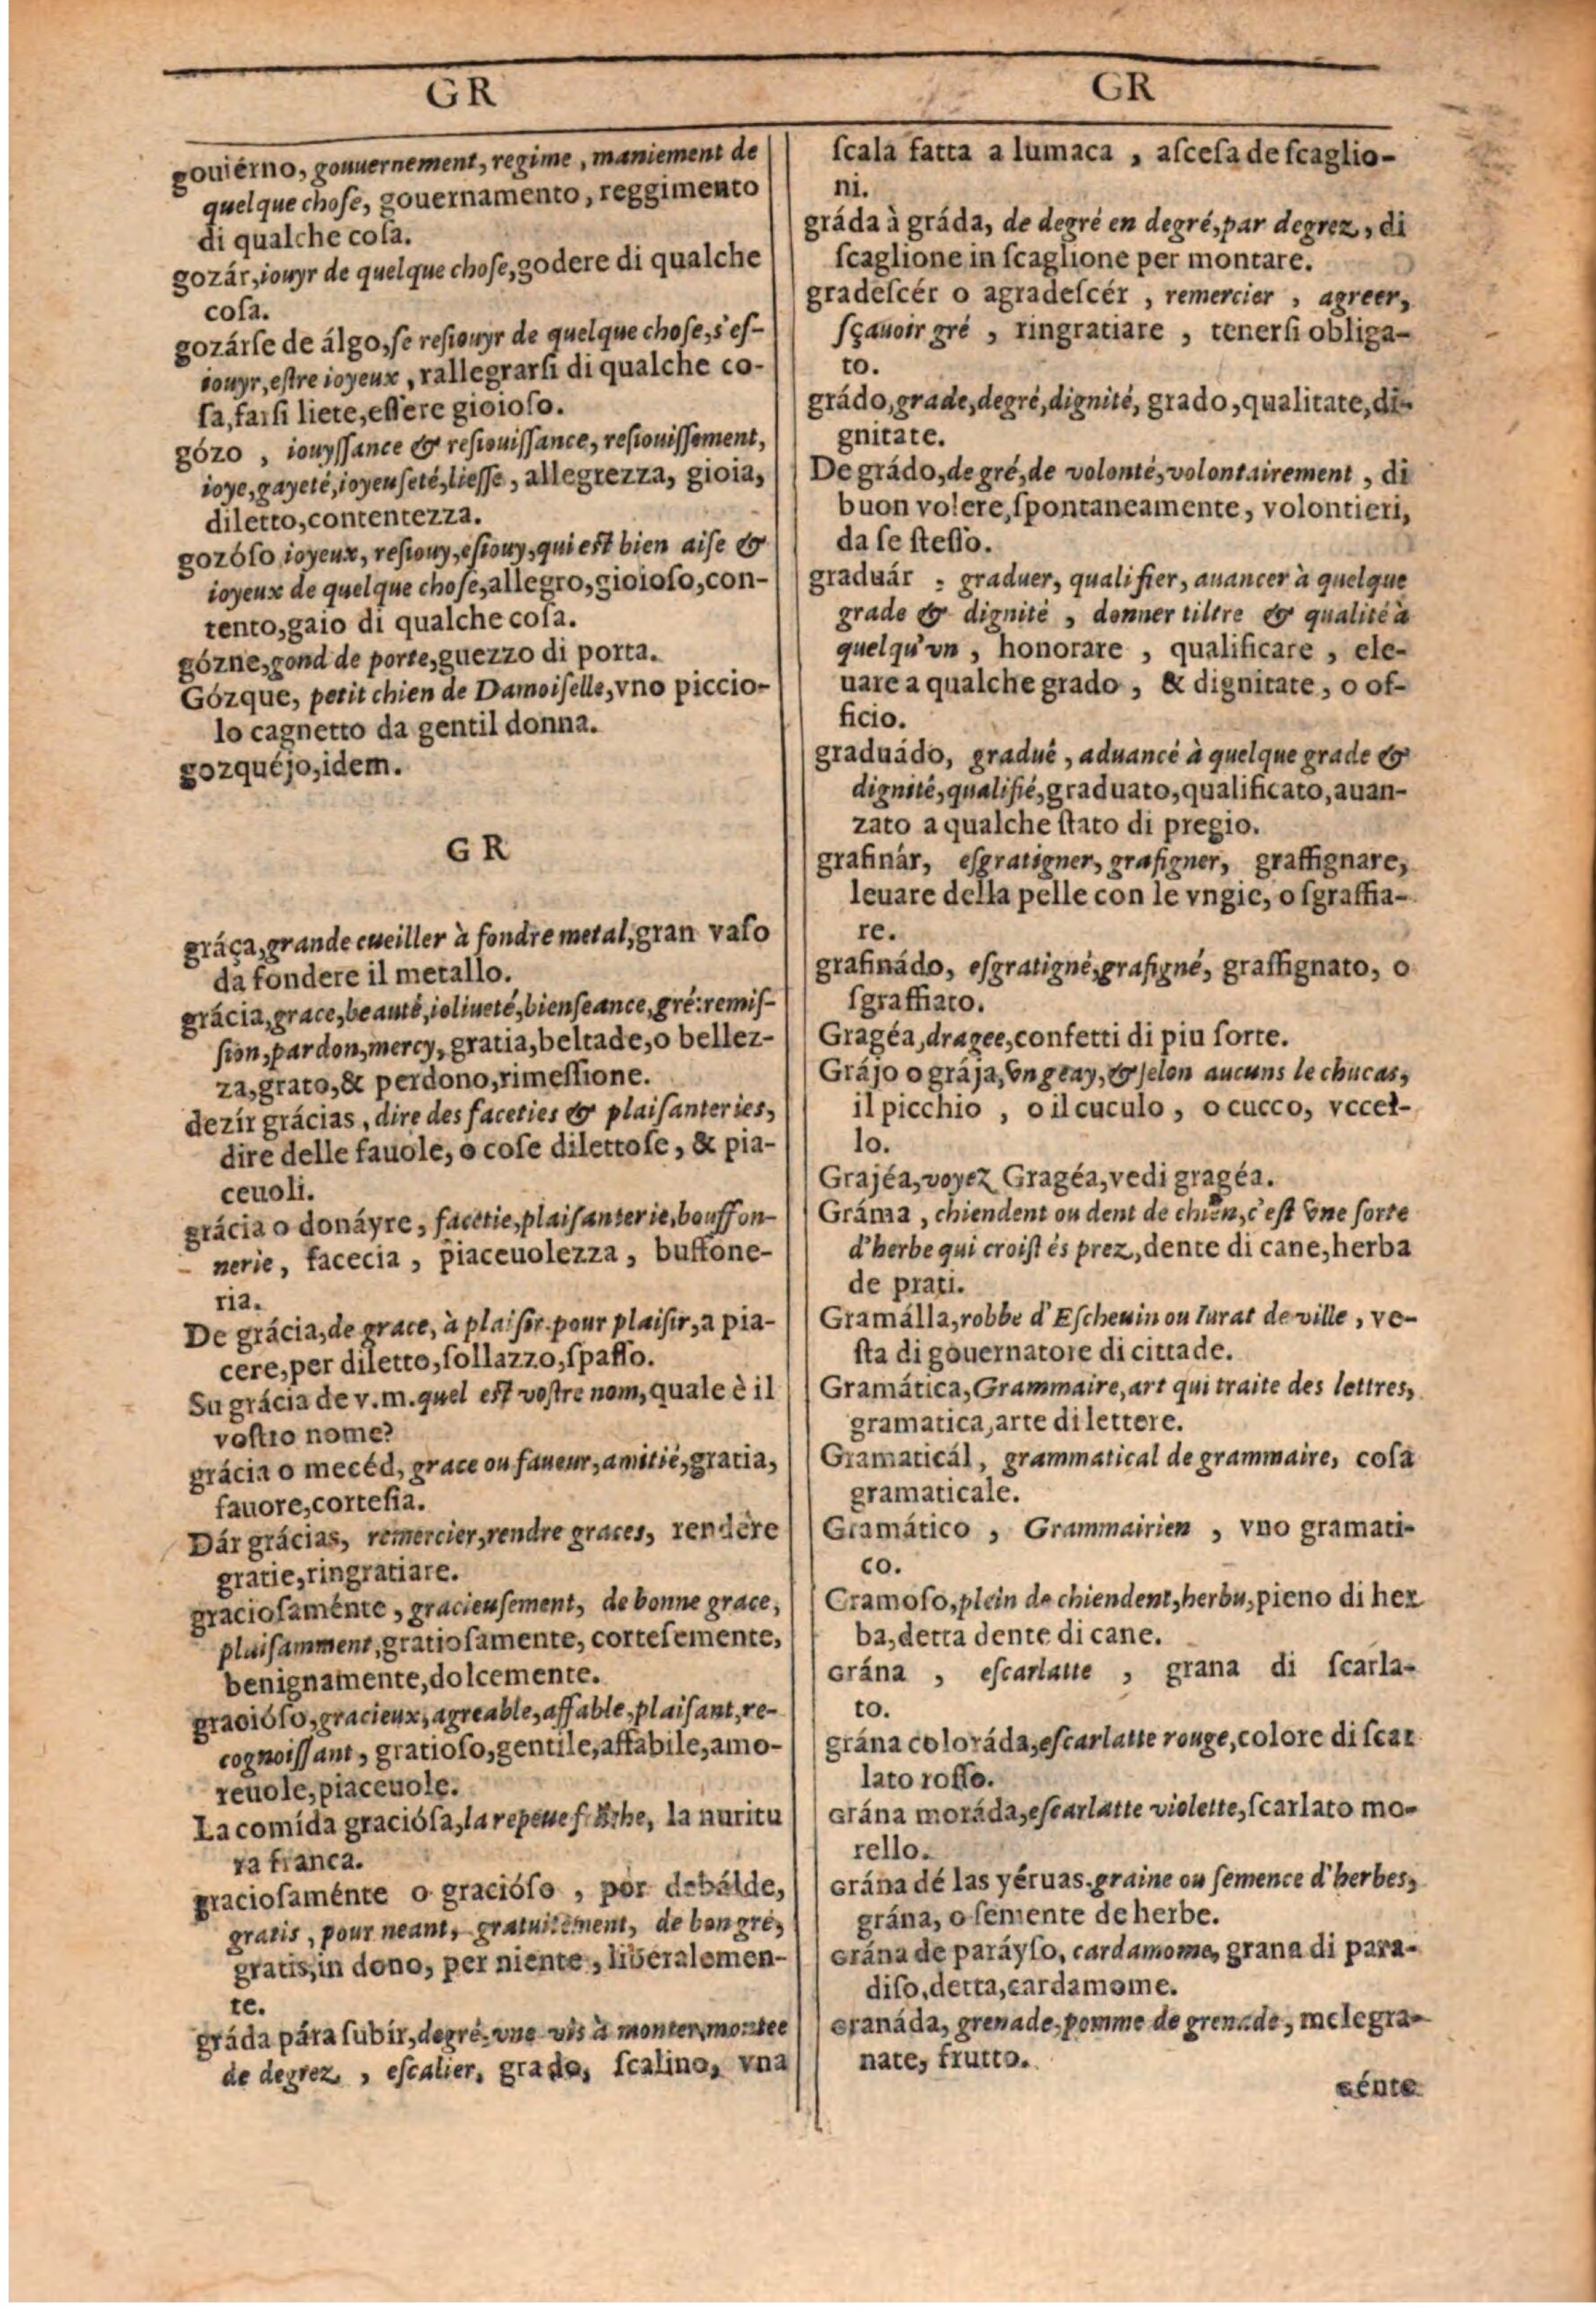 GR
gouiérno, gouuernement, regime, maniement de
quelque chose, gouernamento, reggimento
di qualche coſa.
gozár, iouyr de quelque choſe, godere di qualche
coſa.
gozárſe de álgo, ſe reſiouyr de quelque choſe, s'eſ-
iouyr, eſtre ioyeux, rallegrarſi di qualche co-
ſa, farſi liete, eſſere gioioſo.
gózo , iouyſſance & reſiouiſſance, reſiouiſſement,
ioye, gayeté, ioyeuſeté, lieſſe, allegrezza, gioia,
diletto, contentezza.
gozóſo ioyeux, reſiouy, eſiouy, qui eſt bien aiſe &
ioyeux de quelque choſe, allegro, gioioſo, con-
tento, gaio di qualche coſa.
gózne, gond de porte, guezzo di porta.
Gózque, petit chien de Damoiſelle, vno piccio-
lo cagnetto da gentil donna.
gozquéjo, idem.
GR
gráça, grande cueiller à fondre metal, gran vaſo
da fondere il metallo.
grácia, grace, beauté, ioliueté, bienſeance, gré: remiſ-
ſion, pardon, mercy, gratia, beltade, o bellez-
za, grato, & perdono, rimeſſione.
dezír grácias, dire des faceties & plaiſanteries,
dire delle fauole, o coſe dilettoſe, & pia-
ceuoli.
grácia o donáyre, facetie, plaiſanterie, bouffon-
nerie, facecia , piaceuolezza, buffone-
ria.
De grácia, de grace, à plaiſir pour plaiſir, a pia-
cere, per diletto, ſollazzo, ſpaſſo.
Su grácia de v. m. quel eſt voſtre nom, quale è il
voſtro nome?
grácia o mecéd, grace ou faueur, amitié, gratia,
fauore, corteſia.
Dár grácias, remercier, rendre graces, rendere
gratie, ringratiare.
gracioſaménte, gracieuſement, de bonne grace,
plaiſamment, gratioſamente, corteſemente,
benignamente, dolcemente.
gracióſo, gracieux, agreable, affable, plaiſant, re-
cognoiſſant, gratioſo, gentile, affabile, amo-
reuole, piaceuole.
La comída gracióſa, la repeue la nuritu
ra franca.
gracioſaménte o gracióſo , por debálde,
gratis, pour neant, gratuitement, de bon gré,
gratis, in dono, per niente, liberalemen-
te.
gráda pára ſubír, degré, vne vis à monter, montee
de degrez, eſcalier, grado, ſcalino, vna
GR
ſcala fatta a lumaca , aſceſa de ſcaglio-
ni.
gráda à gráda, de degré en degré, par degrez, di
ſcaglione in ſcaglione per montare.
gradeſcér o agradeſcér , remercier , agreer,
ſçauoir gré , ringratiare , tenerſi obliga-
to.
grádo, grade, degré, dignité, grado, qualitate, di-
gnitate.
De grádo, de gré, de volonté, volontairement, di
buon volere, ſpontaneamente, volontieri,
da ſe ſteſſo.
graduár , graduer, qualifier, auancer à quelque
grade & dignité , donner tiltre & qualité à
quelqu'vn , honorare , qualificare , ele-
uare a qualche grado , & dignitate, o of-
ficio.
graduádo, gradué, aduancé à quelque grade &
dignité, qualifié, graduato, qualificato, auan-
zato a qualche ſtato di pregio.
grafinár, eſgratigner, grafigner, graffignare,
leuare della pelle con le vngie, o ſgraffia-
re.
grafinádo, eſgratigné, grafigné, graffignato, o
ſgraffiato.
Gragéa, dragee, confetti di piu ſorte.
Grájo o grája, vn geay, & ſelon aucuns le chucas,
il picchio , o il cuculo , o cucco, vccel-
lo.
Grajéa, voyez Gragéa, vedi gragéa.
Gráma , chiendent ou dent de chien, c'eſt vne ſorte
d'herbe qui croiſt és prez, dente di cane, herba
de prati.
Gramálla, robbe d'Eſcheuin ou Iurat de ville , ve-
ſta di gouernatore di cittade.
Gramática, Grammaire, art qui traite des lettres,
gramatica, arte di lettere.
Gramaticál, grammatical de grammaire, coſa
gramaticale.
Gramático , Grammairien , vno gramati-
co.
Gramoſo, plein de chiendent, herbu, pieno di her
ba, detta dente di cane.
Grána , eſcarlatte , grana di ſcarla-
to.
grána coloráda, eſcarlatte rouge, colore di ſcar
lato roſſo.
Grána moráda, eſcarlatte violette, ſcarlato mo-
rello.
Grána dé las yéruas. graine ou ſemence d'herbes,
grána, o ſemente de herbe.
Grána de paráyſo, cardamome, grana di para-
diſo, detta, cardamome.
Granáda, grenade, pomme de grenade, melegra-
nate, frutto.